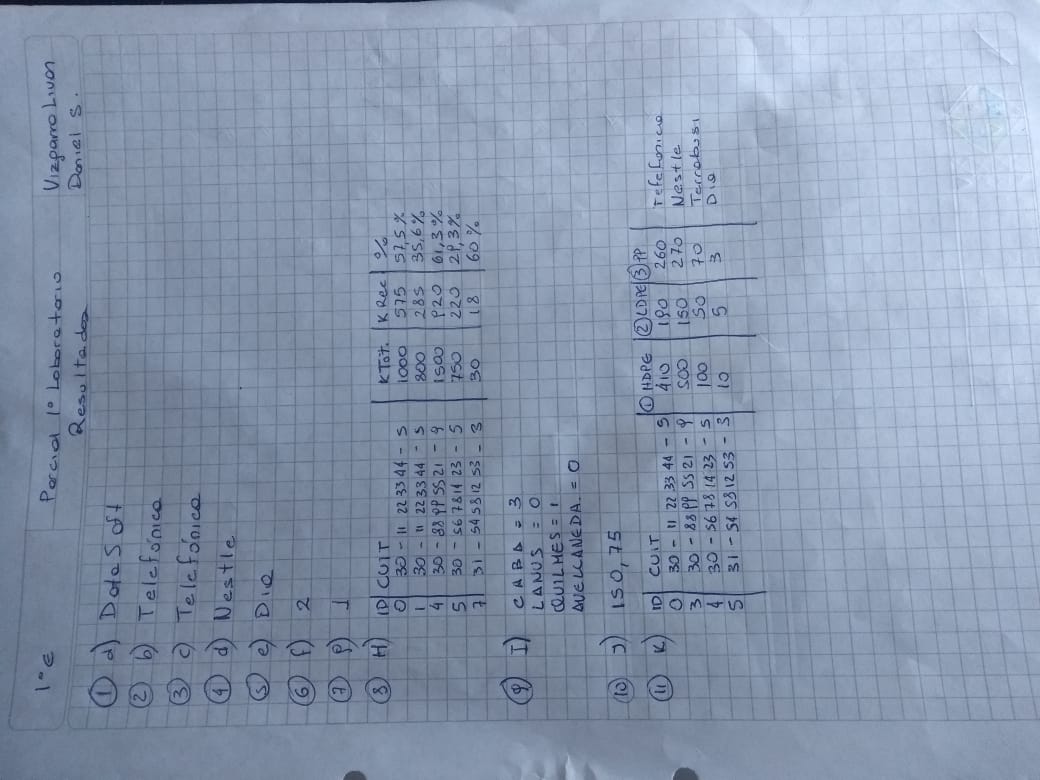 1°E Parcial 1° Laboratorio Vizgarra Livon
Resultados Daniel S.
① a) DataSoft
② b) Telefónica
③ c) Telefónica
④ d) Nestle
⑤ e) Dia
⑥ f) 2
⑦ g) 1
⑧ H) ID CUIT K Tot. K Rec %
0 30-11 22 33 44-5 1000 575 57,5%
1 30-11 22 33 44-5 800 285 35,6%
4 30-88 99 55 21-9 1500 920 61,3%
5 30-56 78 14 23-5 750 220 29,3%
7 31-54 58 12 53-3 30 18 60%
⑨ I) CABA = 3
LANUS = 0
QUILMES = 1
AVELLANEDA. = 0
⑩ J) 150,75
⑪ K) ID CUIT ① HDPE ② LDPE ③ PP
0 30-11 22 33 44-5 410 190 260 Telefonica
3 30-88 99 55 21-9 500 150 270 Nestle
4 30-56 78 14 23-5 100 50 70 Terrabusi
5 31-54 58 12 53-3 10 5 3 Dia